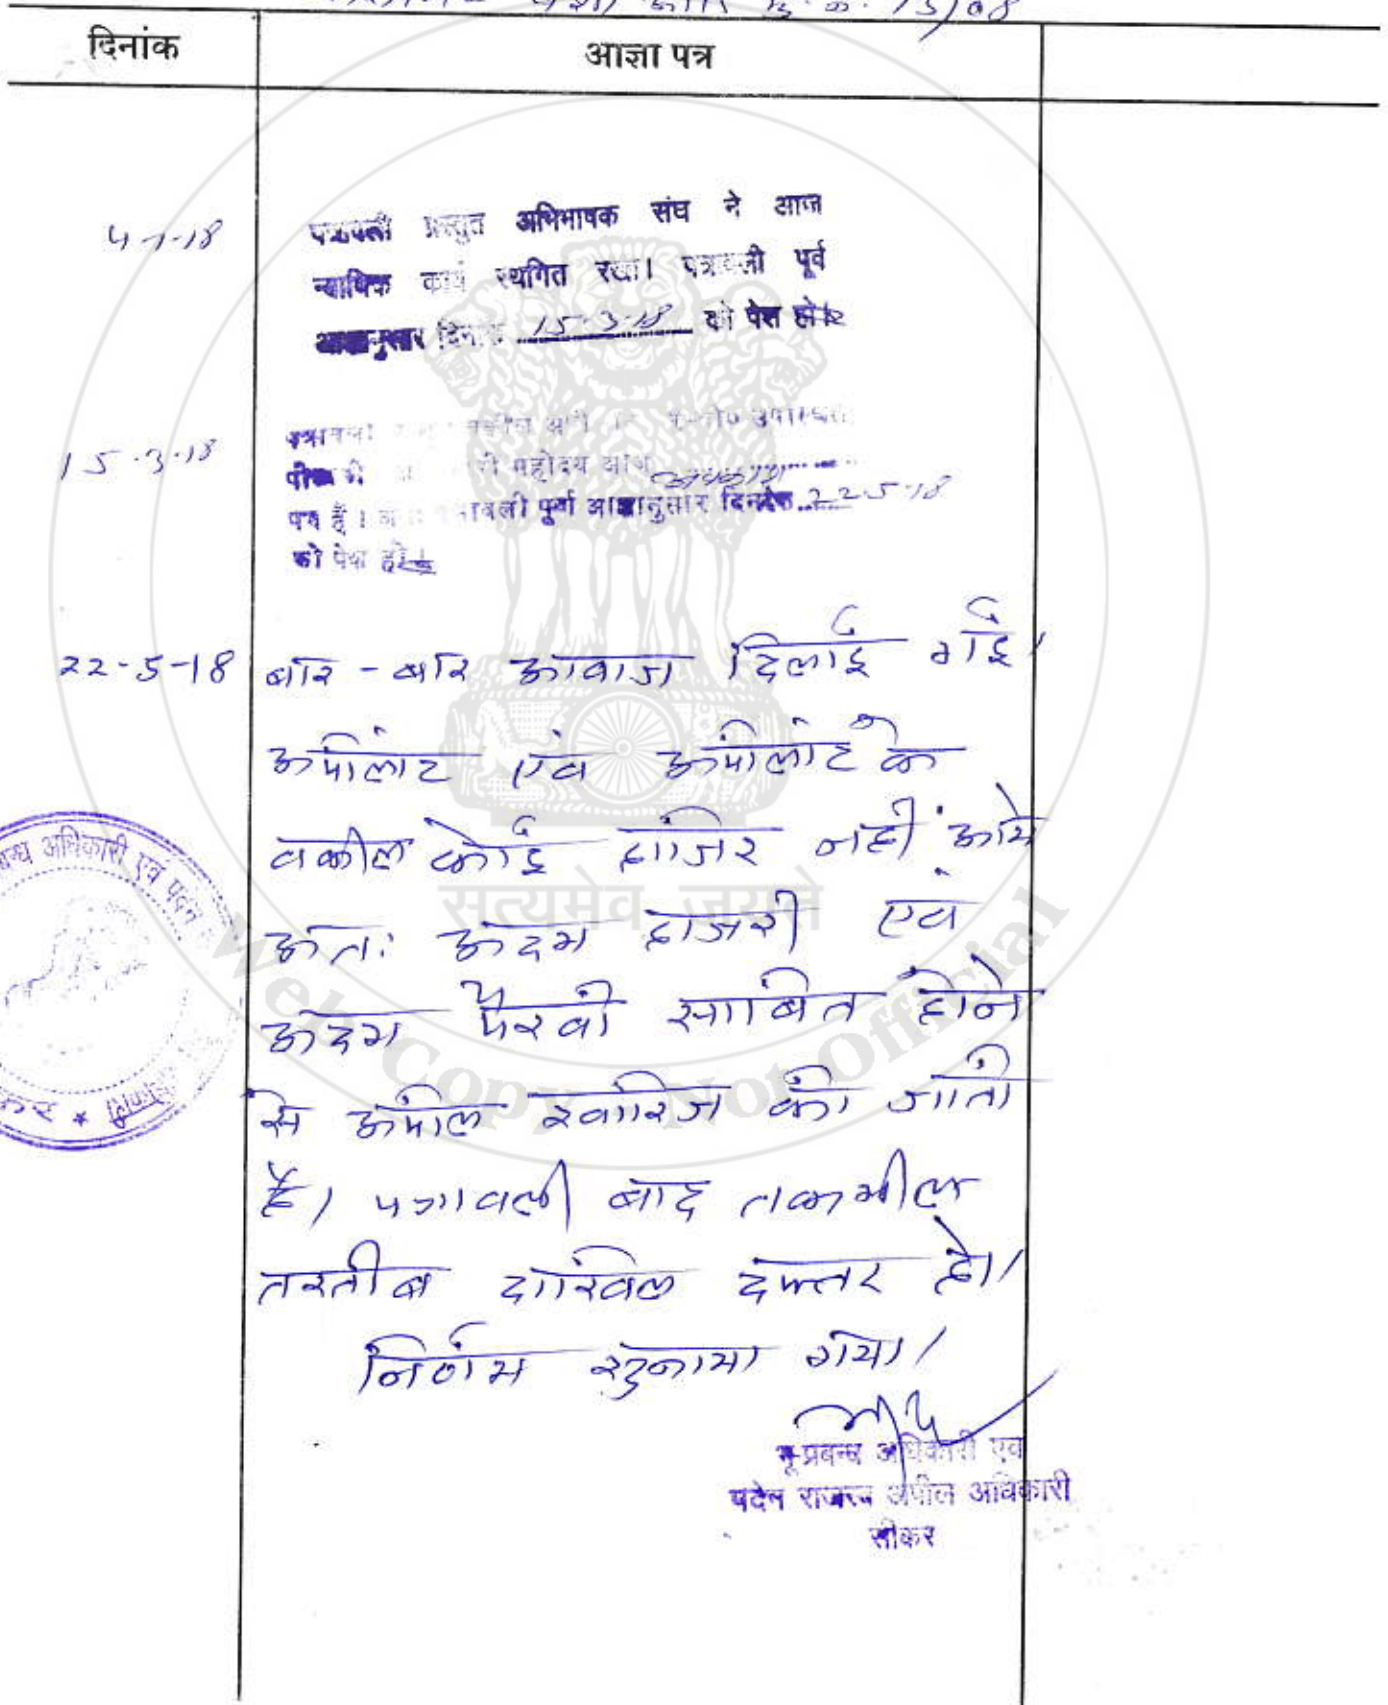 15/08
दिनांक
आज्ञा पत्र
4-1-18
पत्रावली प्रस्तुत अभिभाषक संघ ने आज
न्यायिक कार्य स्थगित रखा। पत्रावली पूर्व
आज्ञानुसार दिनांक 15-3-18 को पेश हो।
15-3-18
पत्रावली वकील उपस्थित
महोदय आज अवकाश
पर हैं। अतः पत्रावली पूर्व आज्ञानुसार दिनांक 22-5-18
को पेश हो।
22-5-18 बार-बार आवाज दिलाई गई।
अपीलांट एवं अपीलांट के
वकील कोई हाजिर नहीं आये
अतः अदम हाजरी एवं
अदम पैरवी साबित होने
से अपील खारिज की जाती
है। पत्रावली बाद तकमील
तरतीब दाखिल दफ्तर हो।
निर्णय सुनाया गया।
भू-प्रबन्ध अधिकारी एवं
पदेन राजस्व अपील अधिकारी
सीकर
बन्ध अधिकारी एवं पदेन
सत्यमेव जयते
Web Copy Not Official